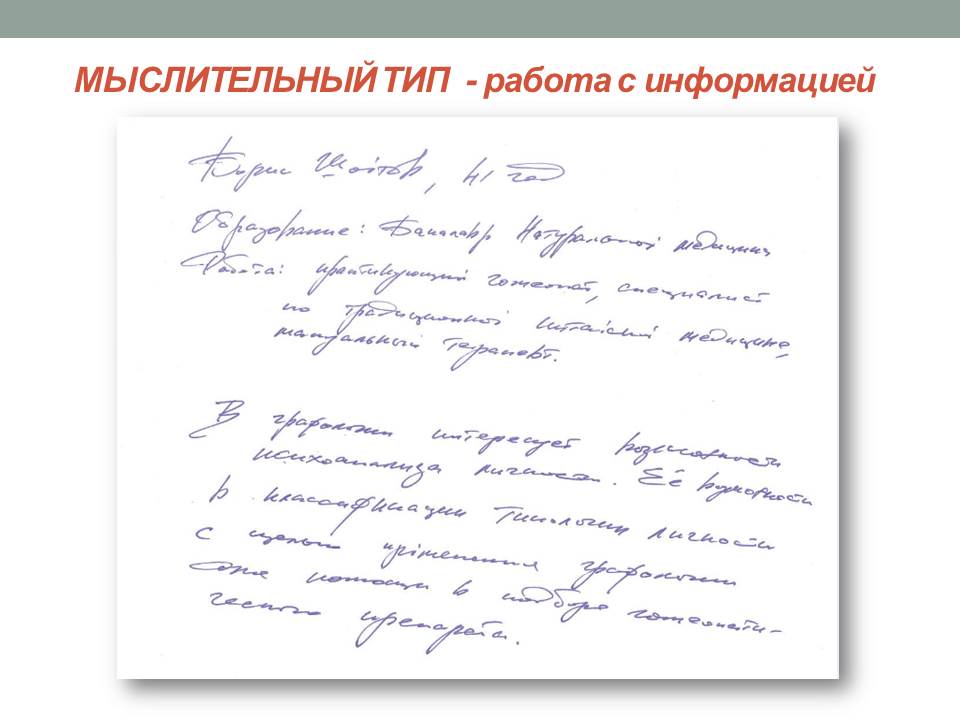 МЫСЛИТЕЛЬНЫЙ ТИП - работа с информацией
Борис Шойтов, 41 год
Образование: Бакалавр Натуральной медицины
Работа: практикующий гомеопат, специалист
по традиционной китайской медицине,
мануальный терапевт.
В графологии интересует возможности
психоанализа личности. Её возможности
в классификации Типологии личности
с целью применения графологии
для помощи в подборе гомеопати-
ческого препарата.